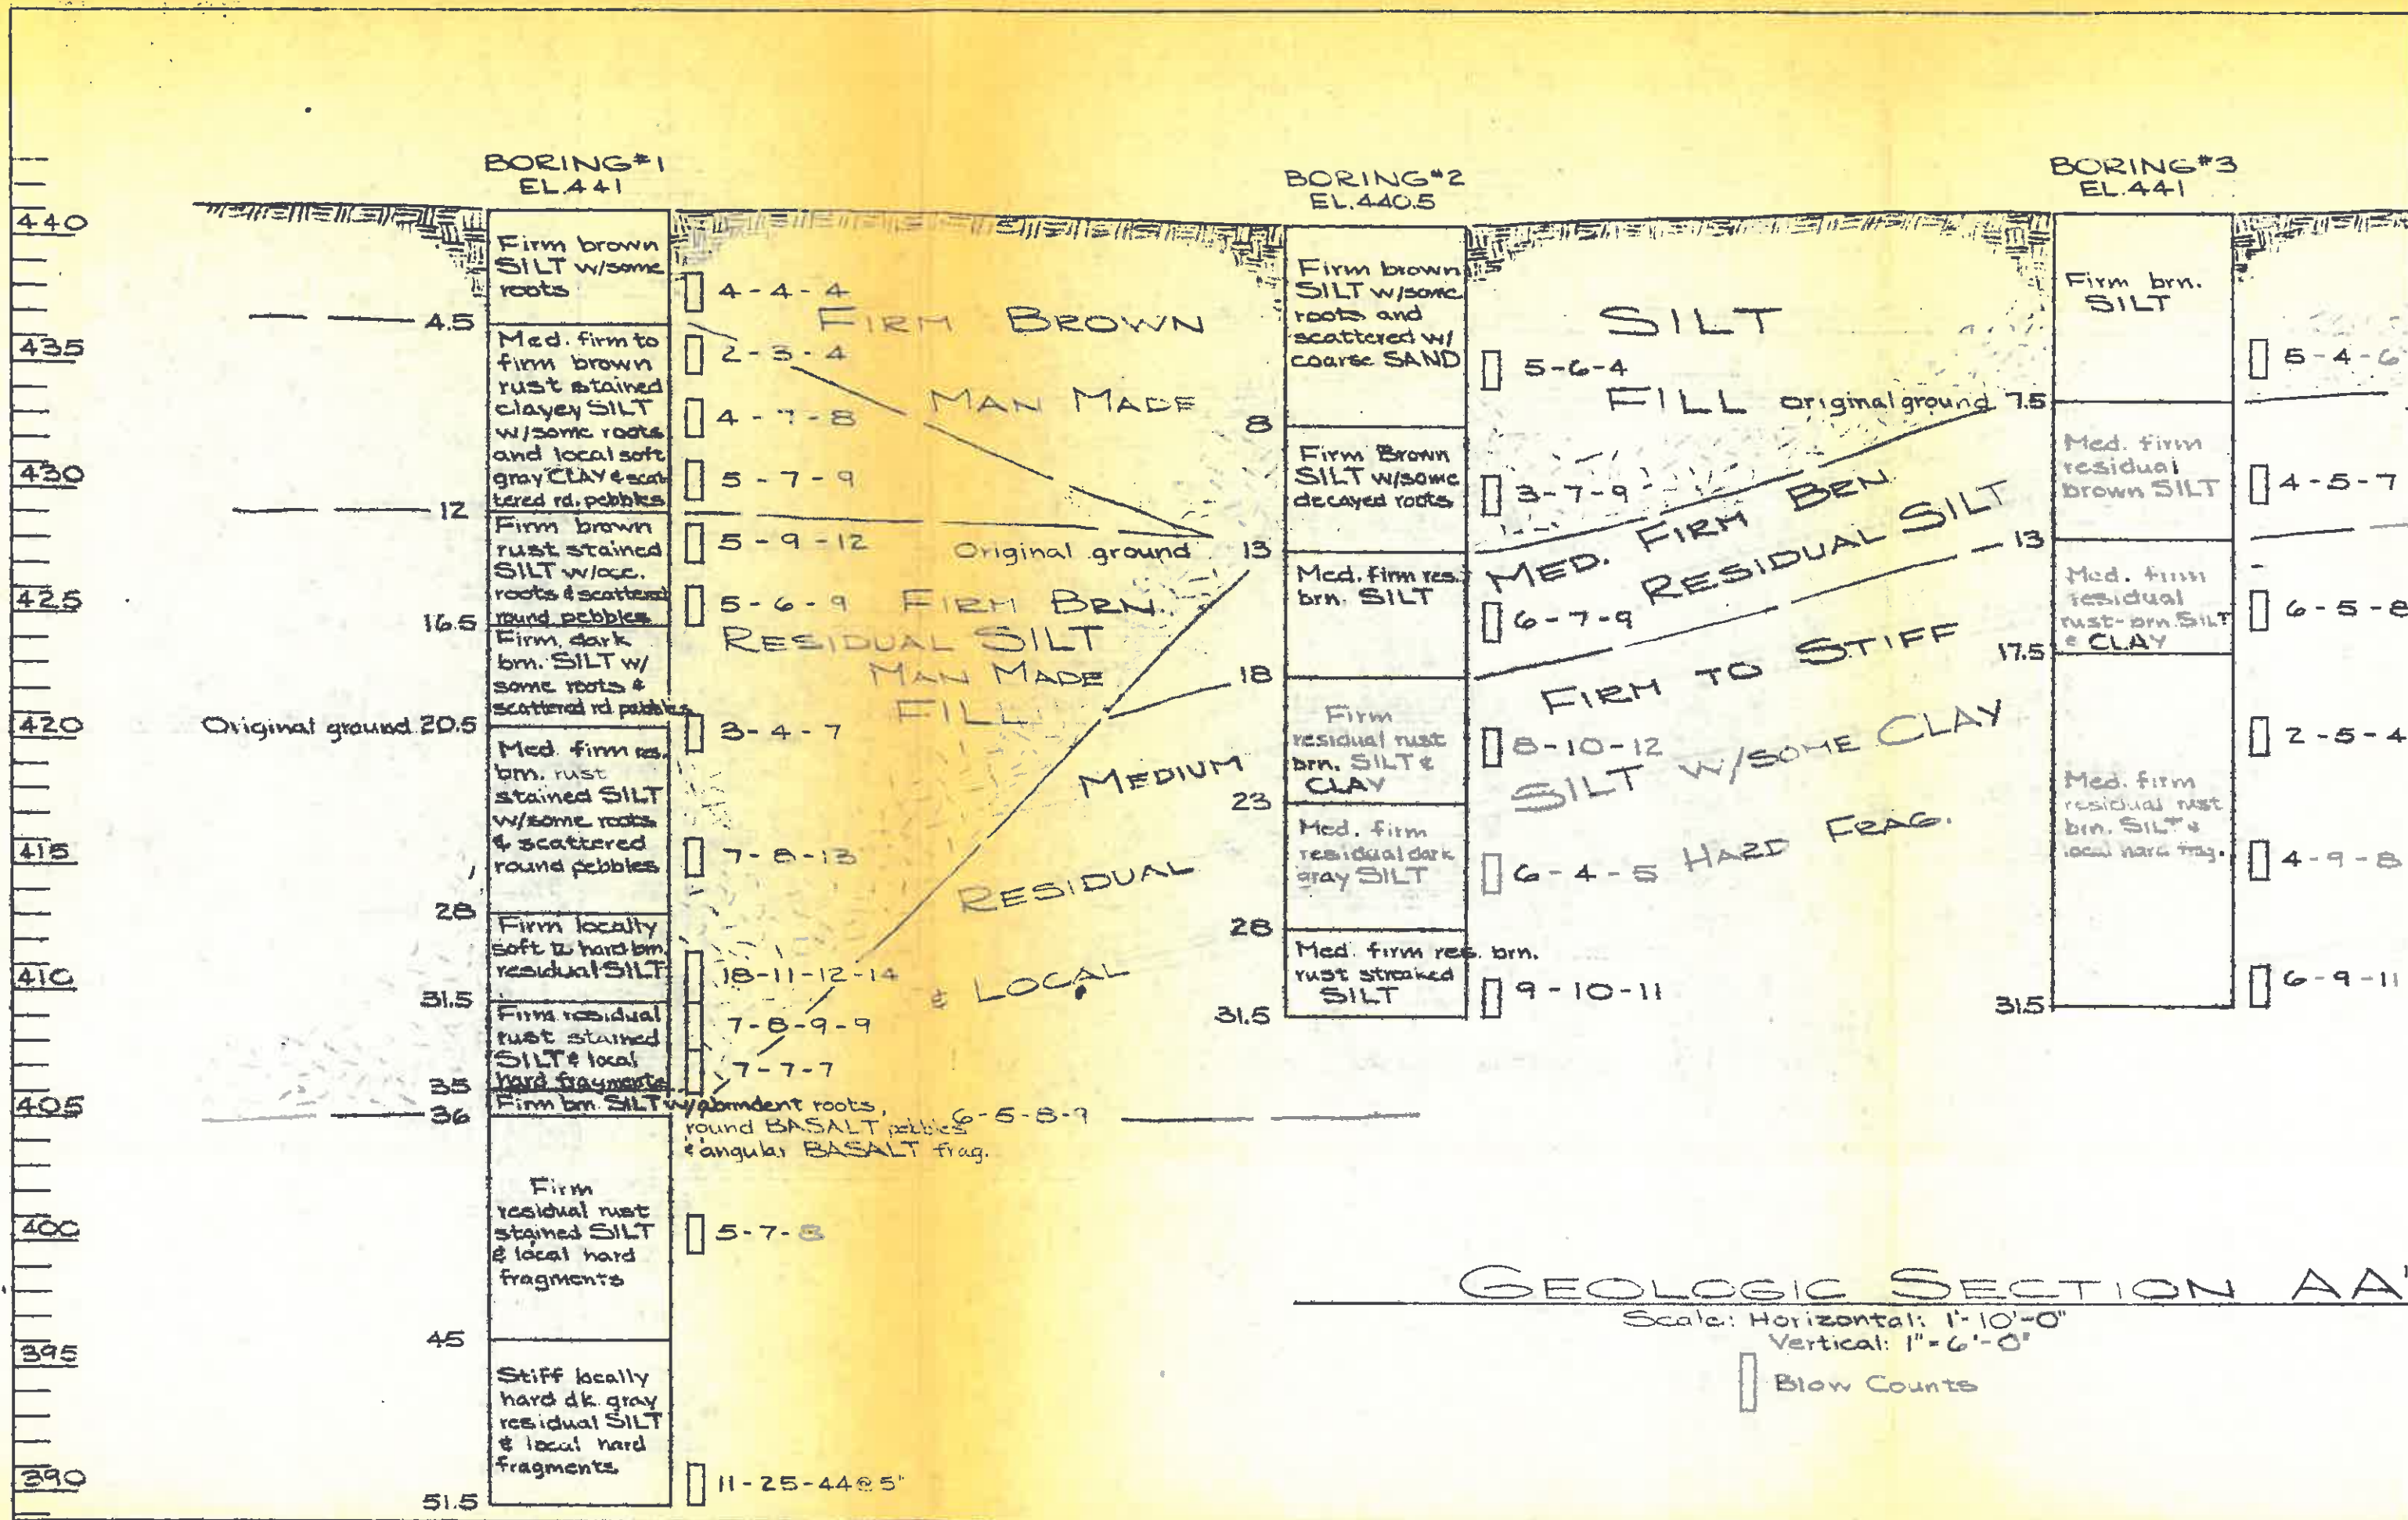 BORING #1
EL. 441
BORING #2
EL. 440.5
BORING #3
EL. 441
440
435
430
425
420
415
410
405
400
395
390
Firm brown
SILT w/some
roots
4.5
Med. firm to
firm brown
rust stained
clayey SILT
w/some roots
and local soft
gray CLAY & scat
tered rd. pebbles
12
Firm brown
rust stained
SILT w/occ.
roots & scattered
round pebbles
16.5
Firm dark
brn. SILT w/
some roots &
scattered rd pebbles
Original ground 20.5
Med. firm res.
brn. rust
stained SILT
w/some roots
& scattered
round pebbles
28
Firm locally
soft to hard brn.
residual SILT
31.5
Firm residual
rust stained
SILT & local
hard fragments
35
Firm brn. SILT w/abundent roots,
round BASALT pebbles
& angular BASALT frag.
36
Firm
residual rust
stained SILT
& local hard
fragments
45
Stiff locally
hard dk. gray
residual SILT
& local hard
fragments
51.5
4-4-4
2-3-4
4-7-8
5-7-9
5-9-12
5-6-9
3-4-7
7-8-13
18-11-12-14
7-8-9-9
7-7-7
6-5-8-9
5-7-8
11-25-44@5"
FIRM BROWN
SILT
MAN MADE
FILL
Original ground
FIRM BRN.
RESIDUAL SILT
MAN MADE
FILL
MEDIUM
RESIDUAL
& LOCAL
Firm brown
SILT w/some
roots and
scattered w/
coarse SAND
8
Firm Brown
SILT w/some
decayed roots
13
Med. firm res.
brn. SILT
18
Firm
residual rust
brn. SILT &
CLAY
23
Med. firm
residual dark
gray SILT
28
Med. firm res. brn.
rust streaked
SILT
31.5
5-6-4
3-7-9
6-7-9
8-10-12
6-4-5
9-10-11
Original ground 7.5
MED. FIRM BRN.
RESIDUAL SILT
FIRM TO STIFF
SILT W/SOME CLAY
HARD FRAG.
Firm brn.
SILT
Med. firm
residual
brown SILT
13
Med. firm
residual
rust-brn. SILT
& CLAY
17.5
Med. firm
residual rust
brn. SILT &
local hard frag.
31.5
5-4-6
4-5-7
6-5-8
2-5-4
4-9-8
6-9-11
GEOLOGIC SECTION AA'
Scale: Horizontal: 1"-10'-0"
Vertical: 1"=6'-0"
Blow Counts